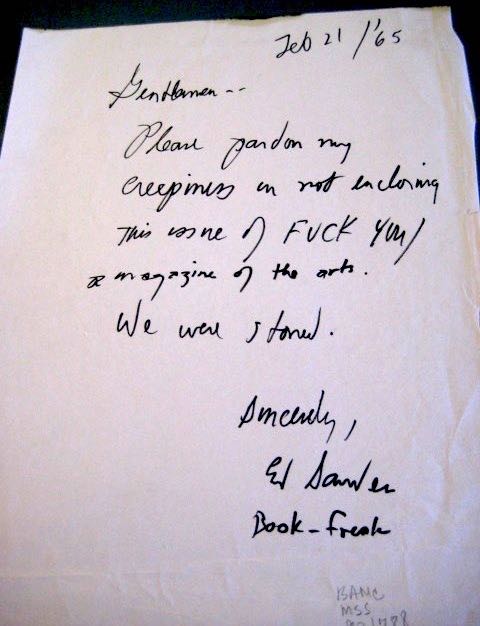 Feb 21/'65
Gentlemen--
Please pardon my
creepiness in not enclosing
this issue of FUCK YOU/
a magazine of the arts.
We were stoned.
Sincerely,
Ed Sanders
Book-Freak
BAMC
MSS